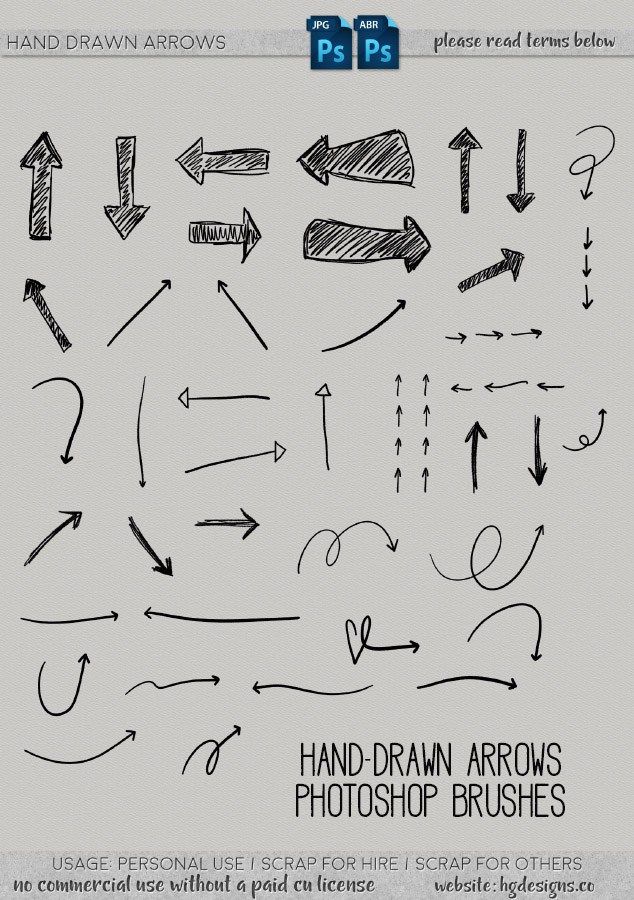 HAND DRAWN ARROWS
JPG Ps
ABR Ps
please read terms below
HAND-DRAWN ARROWS
PHOTOSHOP BRUSHES
USAGE: PERSONAL USE | SCRAP FOR HIRE | SCRAP FOR OTHERS
no commercial use without a paid cu license
website: hgdesigns.co